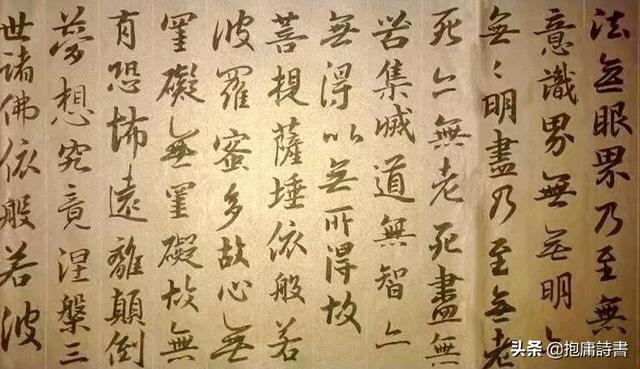 法無眼界乃至無
意識界無無明亦
無〻明盡乃至無老
死亦無老死盡無
苦集滅道無智亦
無得以無所得故
菩提薩埵依般若
波羅蜜多故心無
罣礙無罣礙故無
有恐怖遠離顛倒
夢想究竟涅槃三
世諸佛依般若波
头条 @抱庸詩書